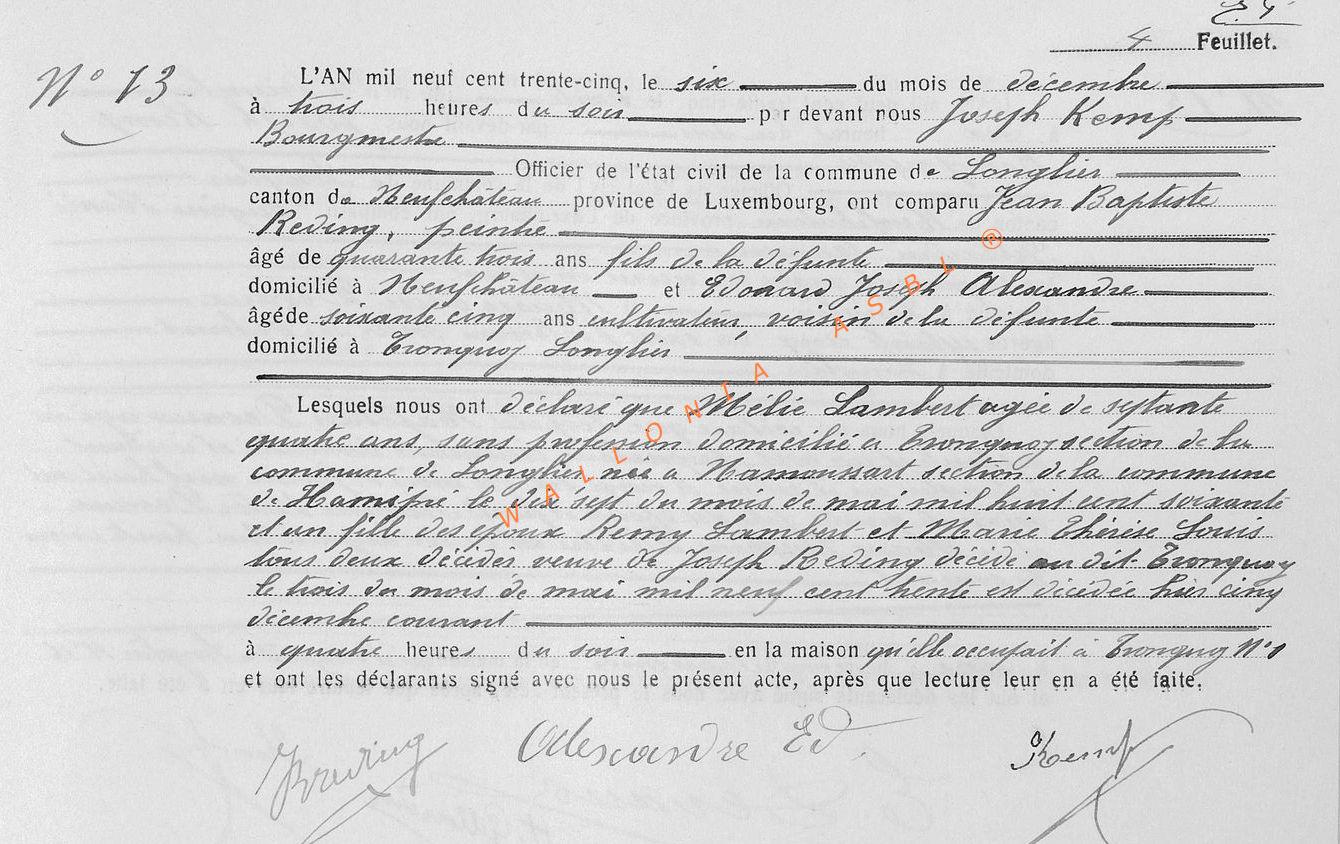 4 Feuillet.
N° 13
L'AN mil neuf cent trente-cinq, le six du mois de décembre
à trois heures du soir par devant nous Joseph Kemp
Bourgmestre
Officier de l'état civil de la commune de Longlier
canton de Neufchâteau province de Luxembourg, ont comparu Jean Baptiste
Reding, peintre
âgé de quarante trois ans fils de la défunte
domicilié à Neufchâteau et Edouard Joseph Alexandre
âgé de soixante cinq ans cultivateur, voisin de la défunte
domicilié à Tronquoy Longlier
Lesquels nous ont déclaré que Mélie Lambert agée de septante
quatre ans, sans profession domicilié a Tronquoy section de la
commune de Longlier née a Namoussart section de la commune
de Hamipré le dix sept du mois de mai mil huit cent soixante
et un fille des époux Remy Lambert et Marie Thérèse Louis
tous deux décédés veuve de Joseph Reding décédé au dit Tronquoy
le trois du mois de mai mil neuf cent trente est décédée hier cinq
décembre courant
à quatre heures du soir en la maison qu'elle occupait à Tronquoy N° 1
et ont les déclarants signé avec nous le présent acte, après que lecture leur en a été faite.
Alexandre Ed. Kemp
WALLONIA ASBL ®